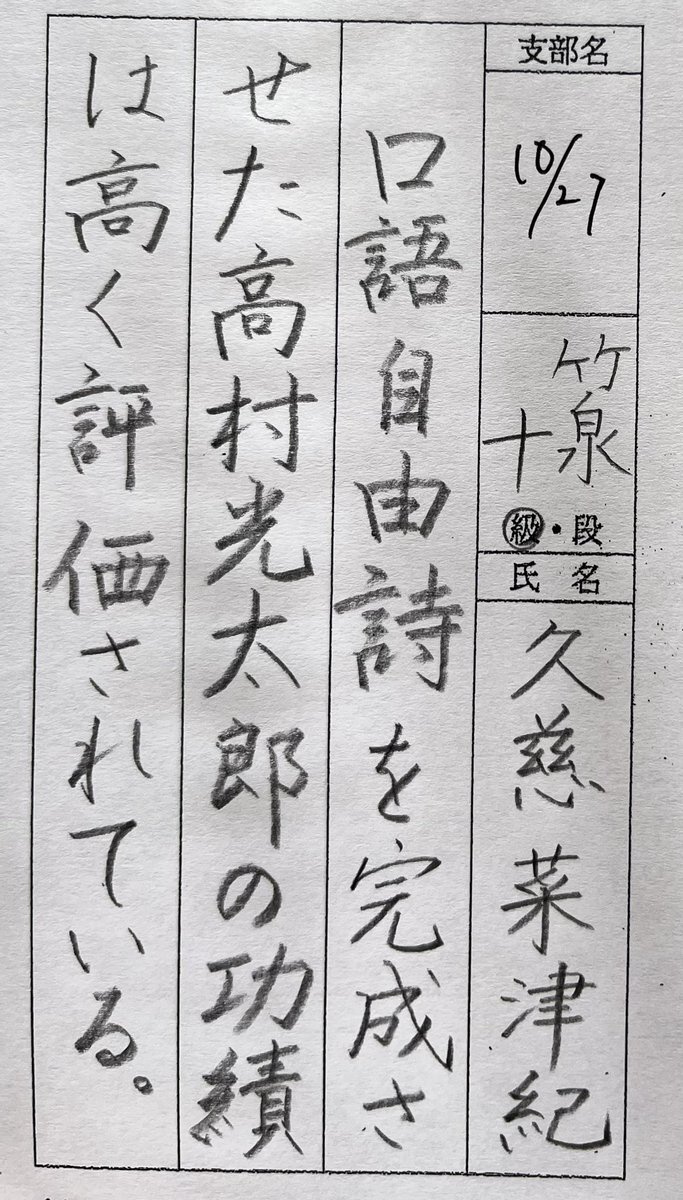 支部名
10/27
竹泉
十
級・段
氏名
久慈菜津紀
口語自由詩を完成さ
せた高村光太郎の功績
は高く評価されている。